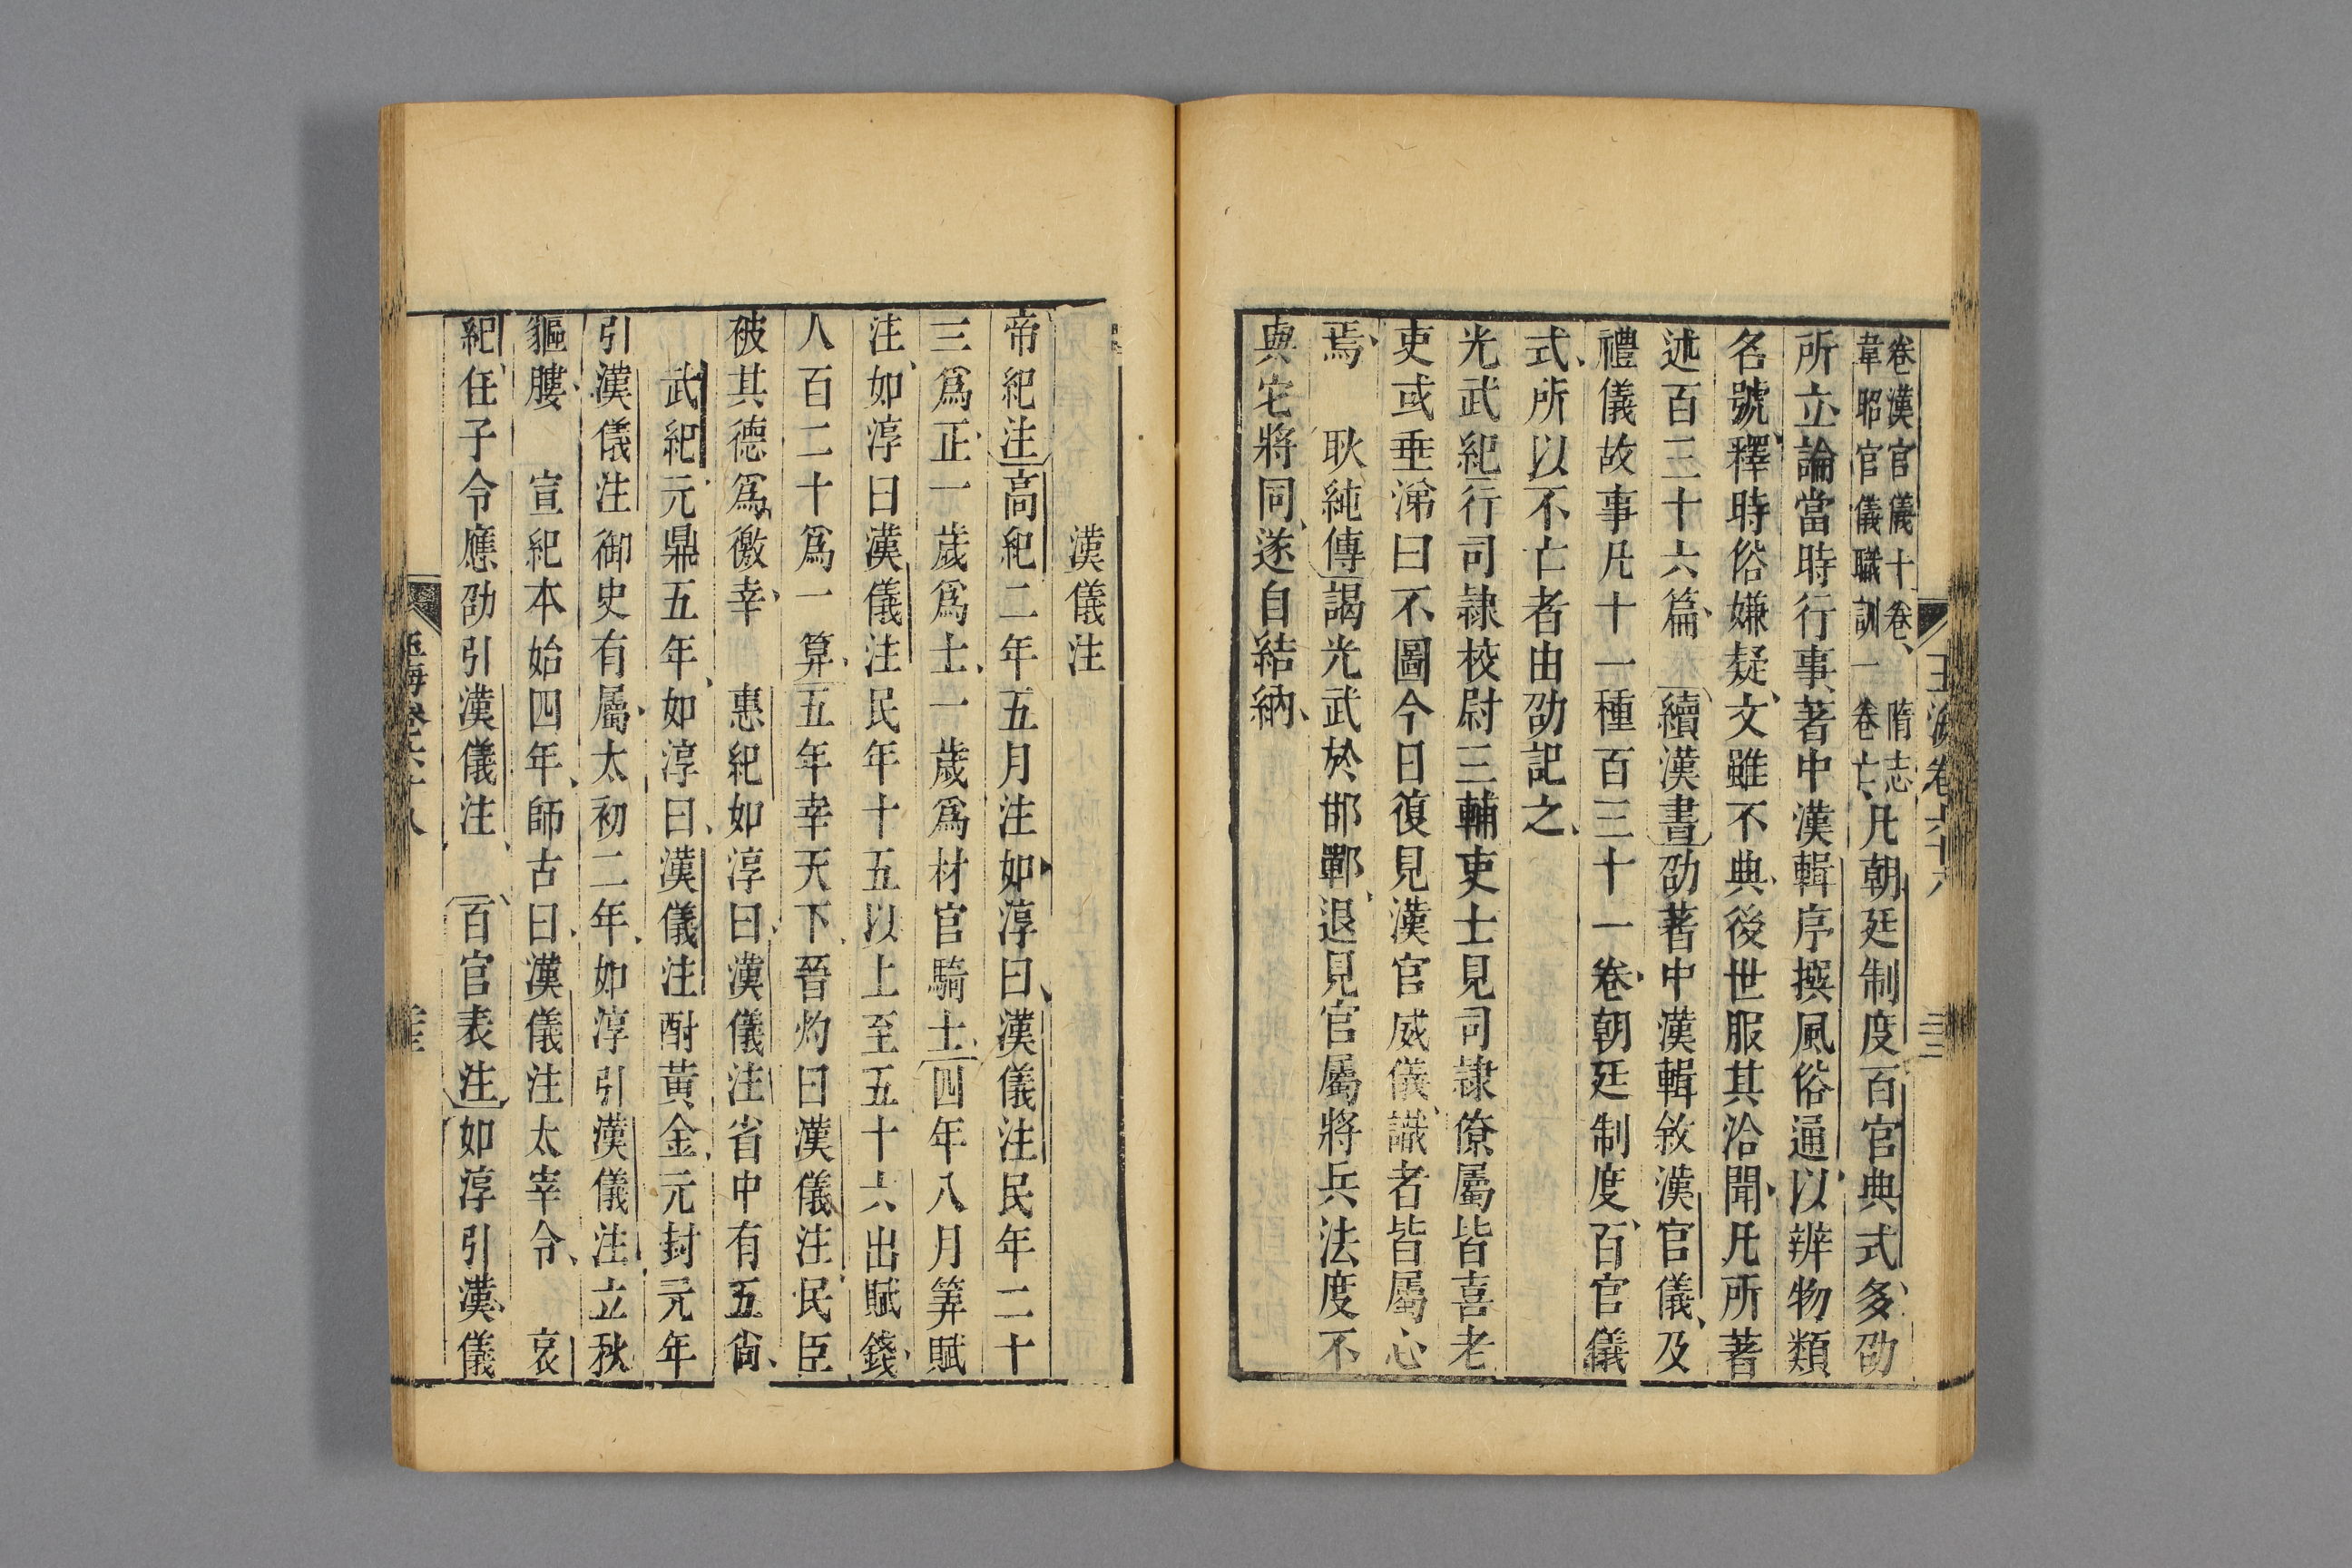 玉海卷六十八
卷漢官儀十卷隋志
韋昭官儀職訓一卷亡
凡朝廷制度百官典式多劭
所立論當時行事著中漢輯序撰風俗通以辨物類
名號釋時俗嫌疑文雖不典後世服其洽聞凡所著
述百三十六篇 續漢書劭著中漢輯敘漢官儀及
禮儀故事凡十一種百三十一卷朝廷制度百官儀
式所以不亡者由劭記之
光武紀行司隷校尉三輔吏士見司隷僚屬皆喜老
吏或垂涕曰不圖今日復見漢官威儀識者皆屬心
焉 耿純傳謁光武於邯鄲退見官屬將兵法度不
與它將同遂自結納
漢儀注
帝紀注高紀二年五月注如淳曰漢儀注民年二十
三爲正一歲爲士一歲爲材官騎士四年八月筭賦
注如淳曰漢儀注民年十五以上至五十六出賦錢
人百二十爲一算五年幸天下晉灼曰漢儀注民臣
被其德爲徼幸 惠紀如淳曰漢儀注省中有五尙
武紀元鼎五年如淳曰漢儀注酎黃金元封元年
引漢儀注御史有屬太初二年如淳引漢儀注立秋
貙膢 宣紀本始四年師古曰漢儀注太宰令 哀
紀任子令應劭引漢儀注 百官表注如淳引漢儀
玉海卷六十八